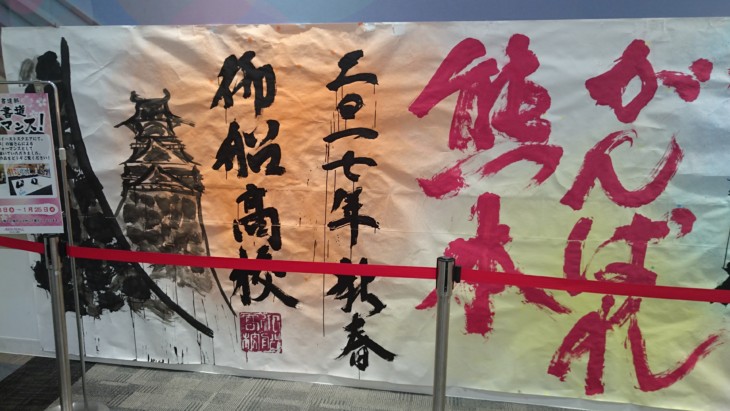 がんばれ
熊本
二〇一七年新春
御船高校
書道
マンス！